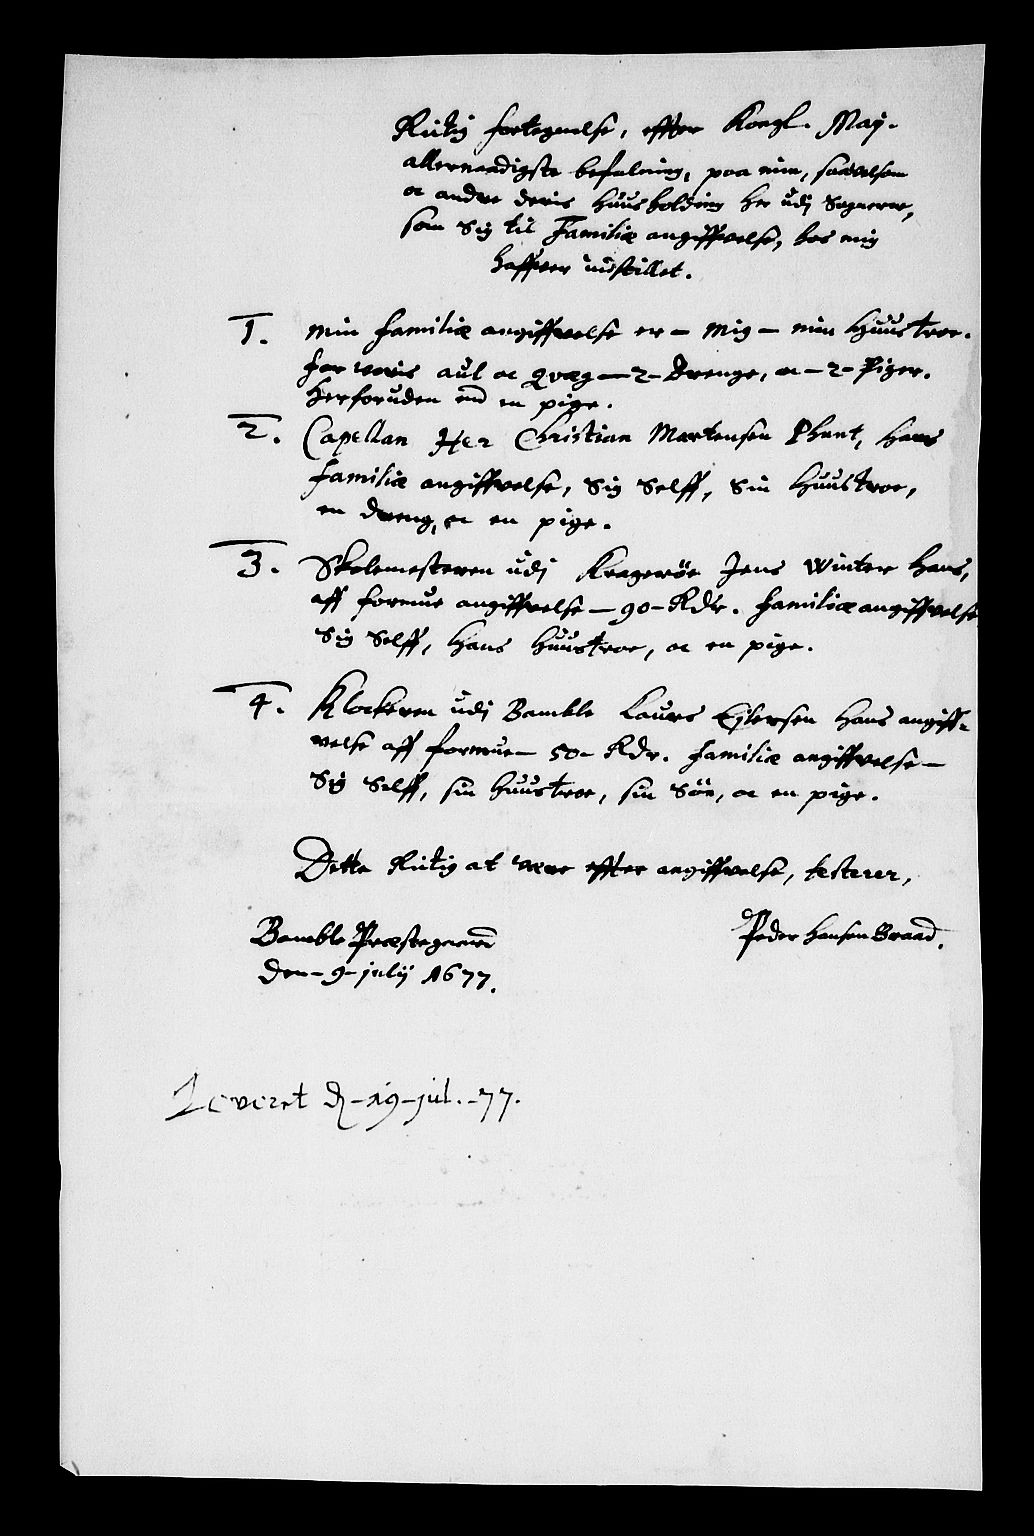 Rictig fortegnelse, effter Kongl. May.
allernaadigste befalning, paa min, saavelsom
oc andre deris Huusholding her udj Sognerne,
som Sig til Familiæ angiffvelse, hos mig
haffver indstillet.
1. Min familiæ angiffvelse er - Mig - min Huustroe.
for voris aul oc Qvæg - 2 - Drenge, oc - 2 - Piger.
Herforuden end en pige.
2. Capellan Her Christian Mortensen Phunt, hans
familiæ angiffvelse, Sig Selff, Sin Huustroe,
en dreng, oc en pige.
3. Skolemesteren udj Krageröe Jens Winter Hans,
aff formue angiffvelse - 90 - Rdr. familiæ angiffvelse
Sig Selff, Hans Huustroe, oc en pige.
4. Klockeren udj Bamble Laurs Ejlersen Hans angiff-
velse aff formue - 50 - Rdr. familiæ angiffvelse -
Sig Selff, sin Huustroe, sin Sön, oc en pige.
Dette Rictig at være effter angiffvelse, testerer,
Bamble Præstegaard
den - 9 - julij 1677.
Peder Hansen Braad.
Leveret d - 19 - jul. - 77.